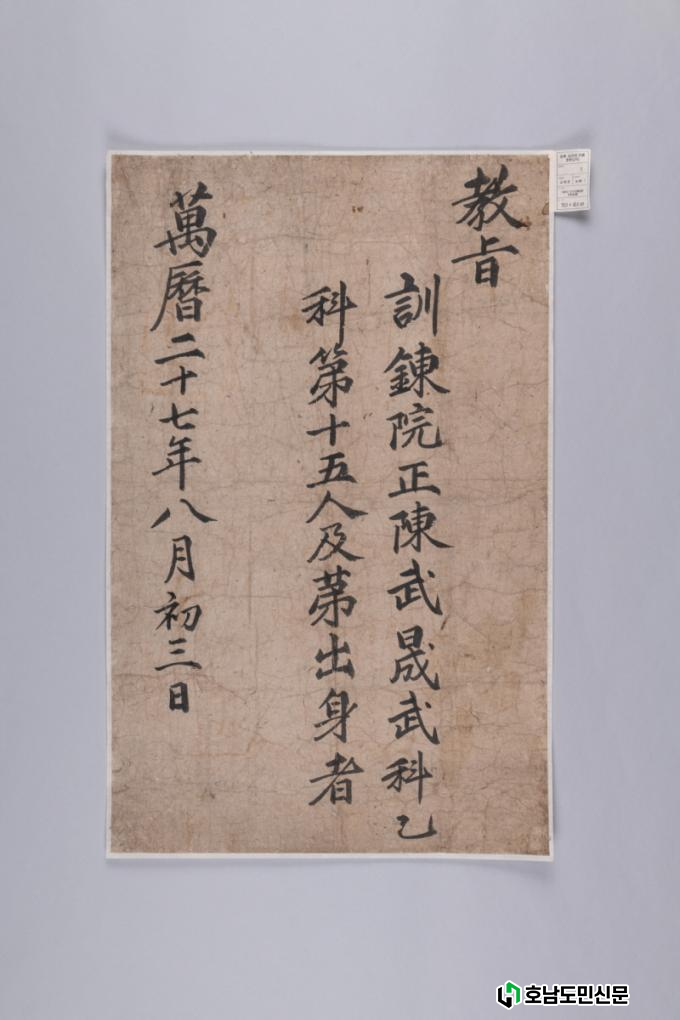 教旨
訓鍊院正陳武晟武科乙
科第十五人及苐出身者
萬曆二十七年八月初三日
호남도민신문